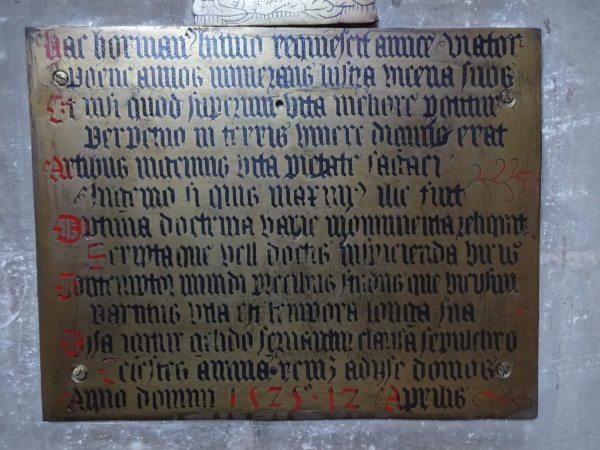 Hac horman' humo requiescit amice viator
Poene annos numerans lustra vicena suos
Et nisi quod superum vita meliore potitur
Perpetuo in terris vivere dignus erat
Artibus vita pietate sagaci
Ingenio si quis maximus ille fuit
Optima doctrina varie monumenta reliquit
Scripta que vell doctis inspicienda viris
Contemptor mundi precibus studiis que
Partitus vita est tempora longa sua
Ossa igitur gelido servantur clausa sepulchro
Celestes anima adiisse domos
Anno domini 1525 · 12 Aprilis